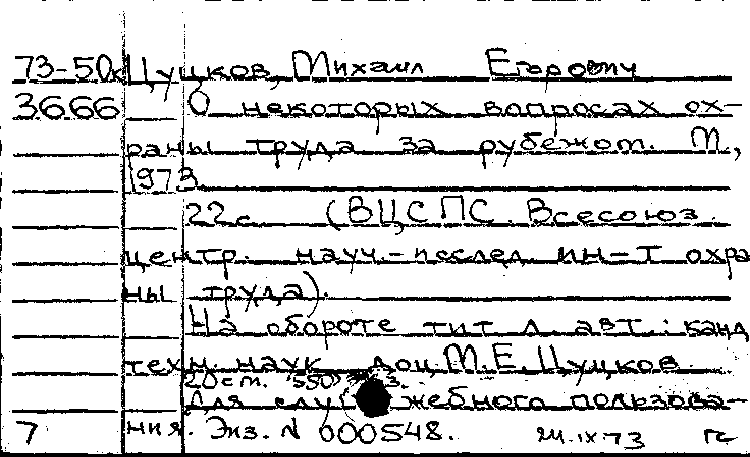 73-50к Цуцков, Михаил Егорович
3666 О некоторых вопросах ох-
раны труда за рубежом. М.,
1973.
22 с. (ВЦСПС. Всесоюз.
центр. науч.-исслед. ин-т охра
ны труда).
На обороте тит. л. авт.: канд.
техн. наук доц. М.Е. Цуцков
20 см. 550
Для служебного пользова-
7 ния. Экз. N 000548. 24.IX.73 гс